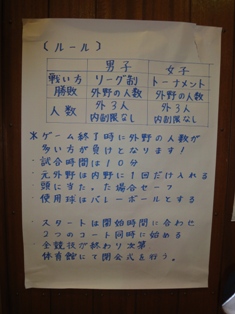 (ルール)
男子 女子
戦い方 リーグ制 トーナメント
勝敗 外野の人数 外野の人数
人数 外3人 内制限なし 外3人 内制限なし
*ゲーム終了時に外野の人数が
多い方が負けとなります!
・試合時間は10分
・元外野は内野に1回だけ入れる
・頭に当たった場合セーフ
・使用球はバレーボールとする
・スタートは開始時間に合わせ
2つのコート同時に始める
・全競技が終わり次第
体育館にて閉会式を行う。